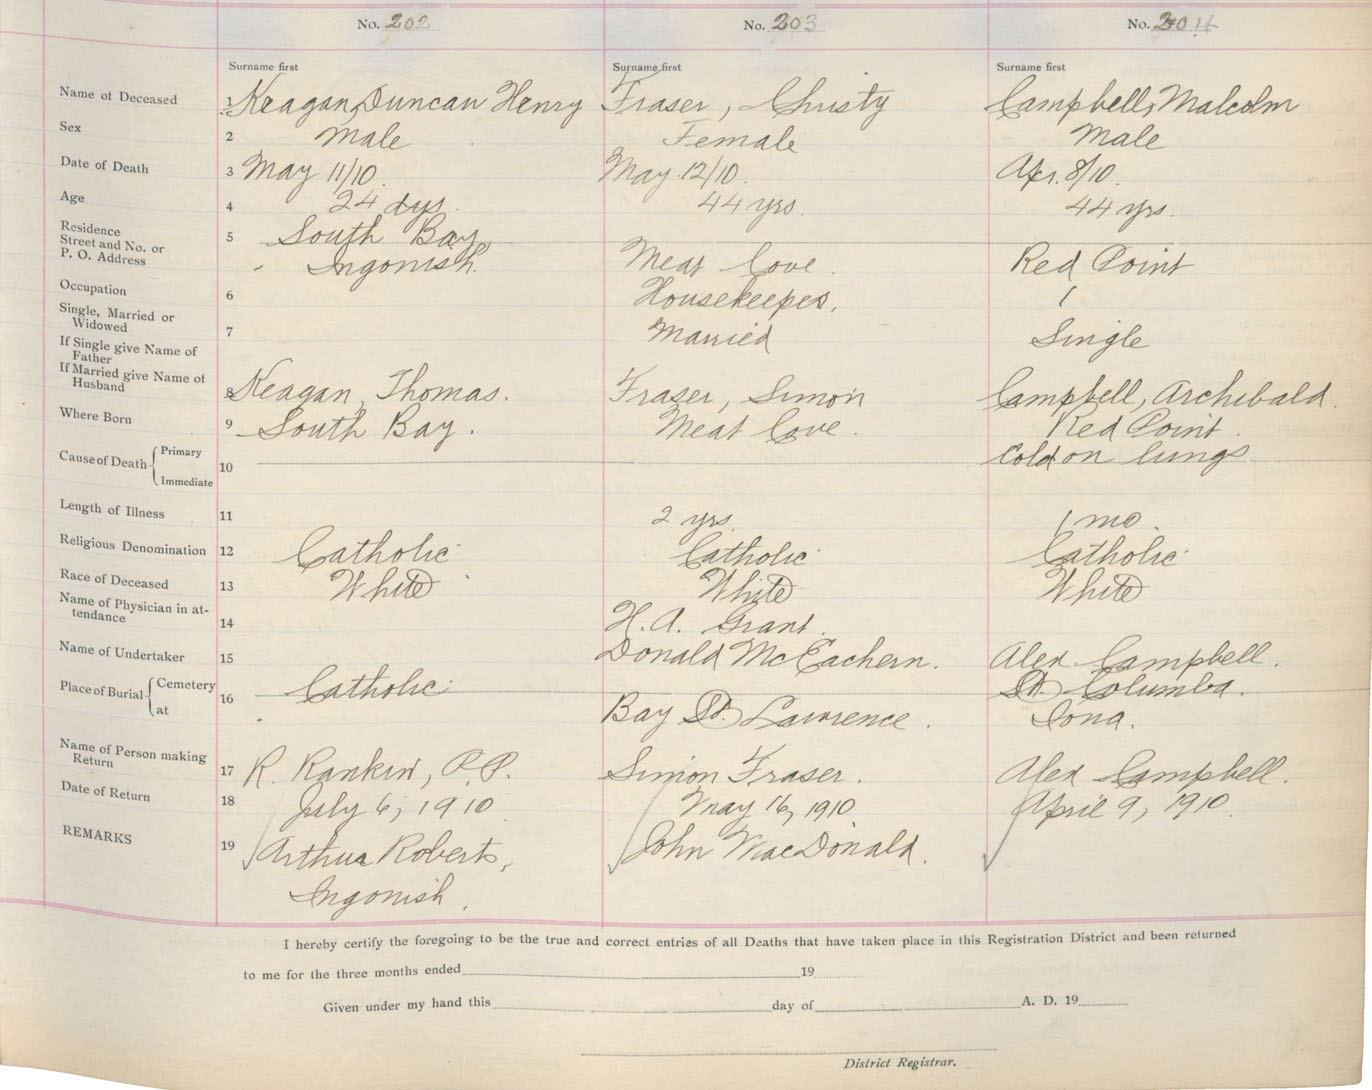 No. 202 No. 203 No. 204
Surname first Surname first Surname first
Name of Deceased 1 Keagan, Duncan Henry Fraser, Christy Campbell, Malcolm
Sex 2 Male Female Male
Date of Death 3 May 11/10. May 12/10. Apr. 8/10.
Age 4 24 dys. 44 yrs. 44 yrs.
Residence
Street and No. or
P. O. Address
5 South Bay,
Ingonish. Meat Cove. Red Point
Occupation 6 Housekeeper.
Single, Married or
Widowed 7 Married Single
If Single give Name of
Father
If Married give Name of
Husband 8 Keagan, Thomas. Fraser, Simon Campbell, Archibald.
Where Born 9 South Bay. Meat Cove. Red Point.
Cause of Death { Primary
Immediate 10 Cold on lungs
Length of Illness 11 2 yrs. 1 mo.
Religious Denomination 12 Catholic Catholic Catholic
Race of Deceased 13 White White White
Name of Physician in at-
tendance 14 H. A. Grant.
Name of Undertaker 15 Donald McEachern. Alex Campbell.
Place of Burial { Cemetery
at 16 Catholic St. Columba.
Bay St. Lawrence. Iona.
Name of Person making
Return 17 R. Rankin, P.P. Simon Fraser. Alex Campbell.
Date of Return 18 July 6, 1910 May 16, 1910 April 9, 1910.
REMARKS 19 Arthur Roberts, John MacDonald.
Ingonish.
I hereby certify the foregoing to be the true and correct entries of all Deaths that have taken place in this Registration District and been returned
to me for the three months ended 19
Given under my hand this day of A. D. 19
District Registrar.